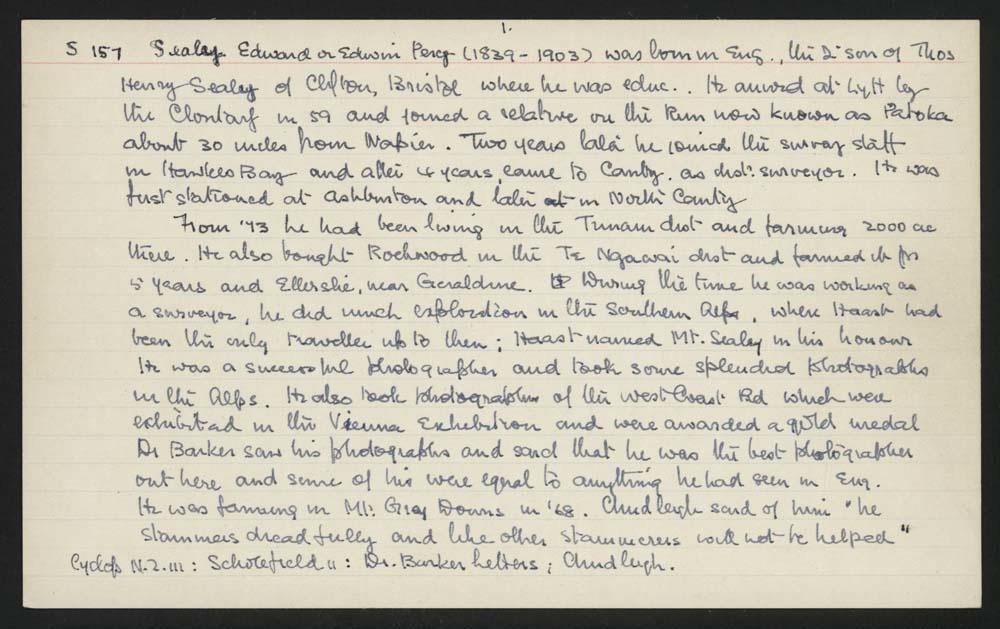 1.
S 157 Sealey Edward or Edwin Percy (1839-1903) was born in Eng., the 2nd son of Thos
Henry Sealey of Clifton, Bristol where he was educ.. He arrived at Lytt by
the Clontarf in 59 and joined a relative on the Run now known as Patoka
about 30 miles from Napier. Two years later he joined the survey staff
in Hawkes Bay and after 4 years, came to Canty. as dist. surveyor. He was
first stationed at Ashburton and later at in North Canty
From '73 he had been living in the Timaru dist and farming 2000 ac
there. He also bought Rockwood in the Te Ngawai dist and farmed it for
5 years and Ellerslie, near Geraldine. During the time he was working as
a surveyor, he did much exploration in the Southern Alps, where Haast had
been the only traveller up to then; Haast named Mt. Sealey in his honour
He was a successful photographer and took some splendid photographs
in the Alps. He also took photographs of the West Coast Rd which were
exhibited in the Vienna Exhibition and were awarded a gold medal
Dr Barker saw his photographs and said that he was the best photographer
out here and some of his were equal to anything he had seen in Eng.
He was farming in Mt. Grey Downs in '68. Chudleigh said of him "he
stammers dreadfully and like other stammerers will not be helped"
Cyclop N.Z. III: Scholefield II: Dr. Barker letters; Chudleigh.